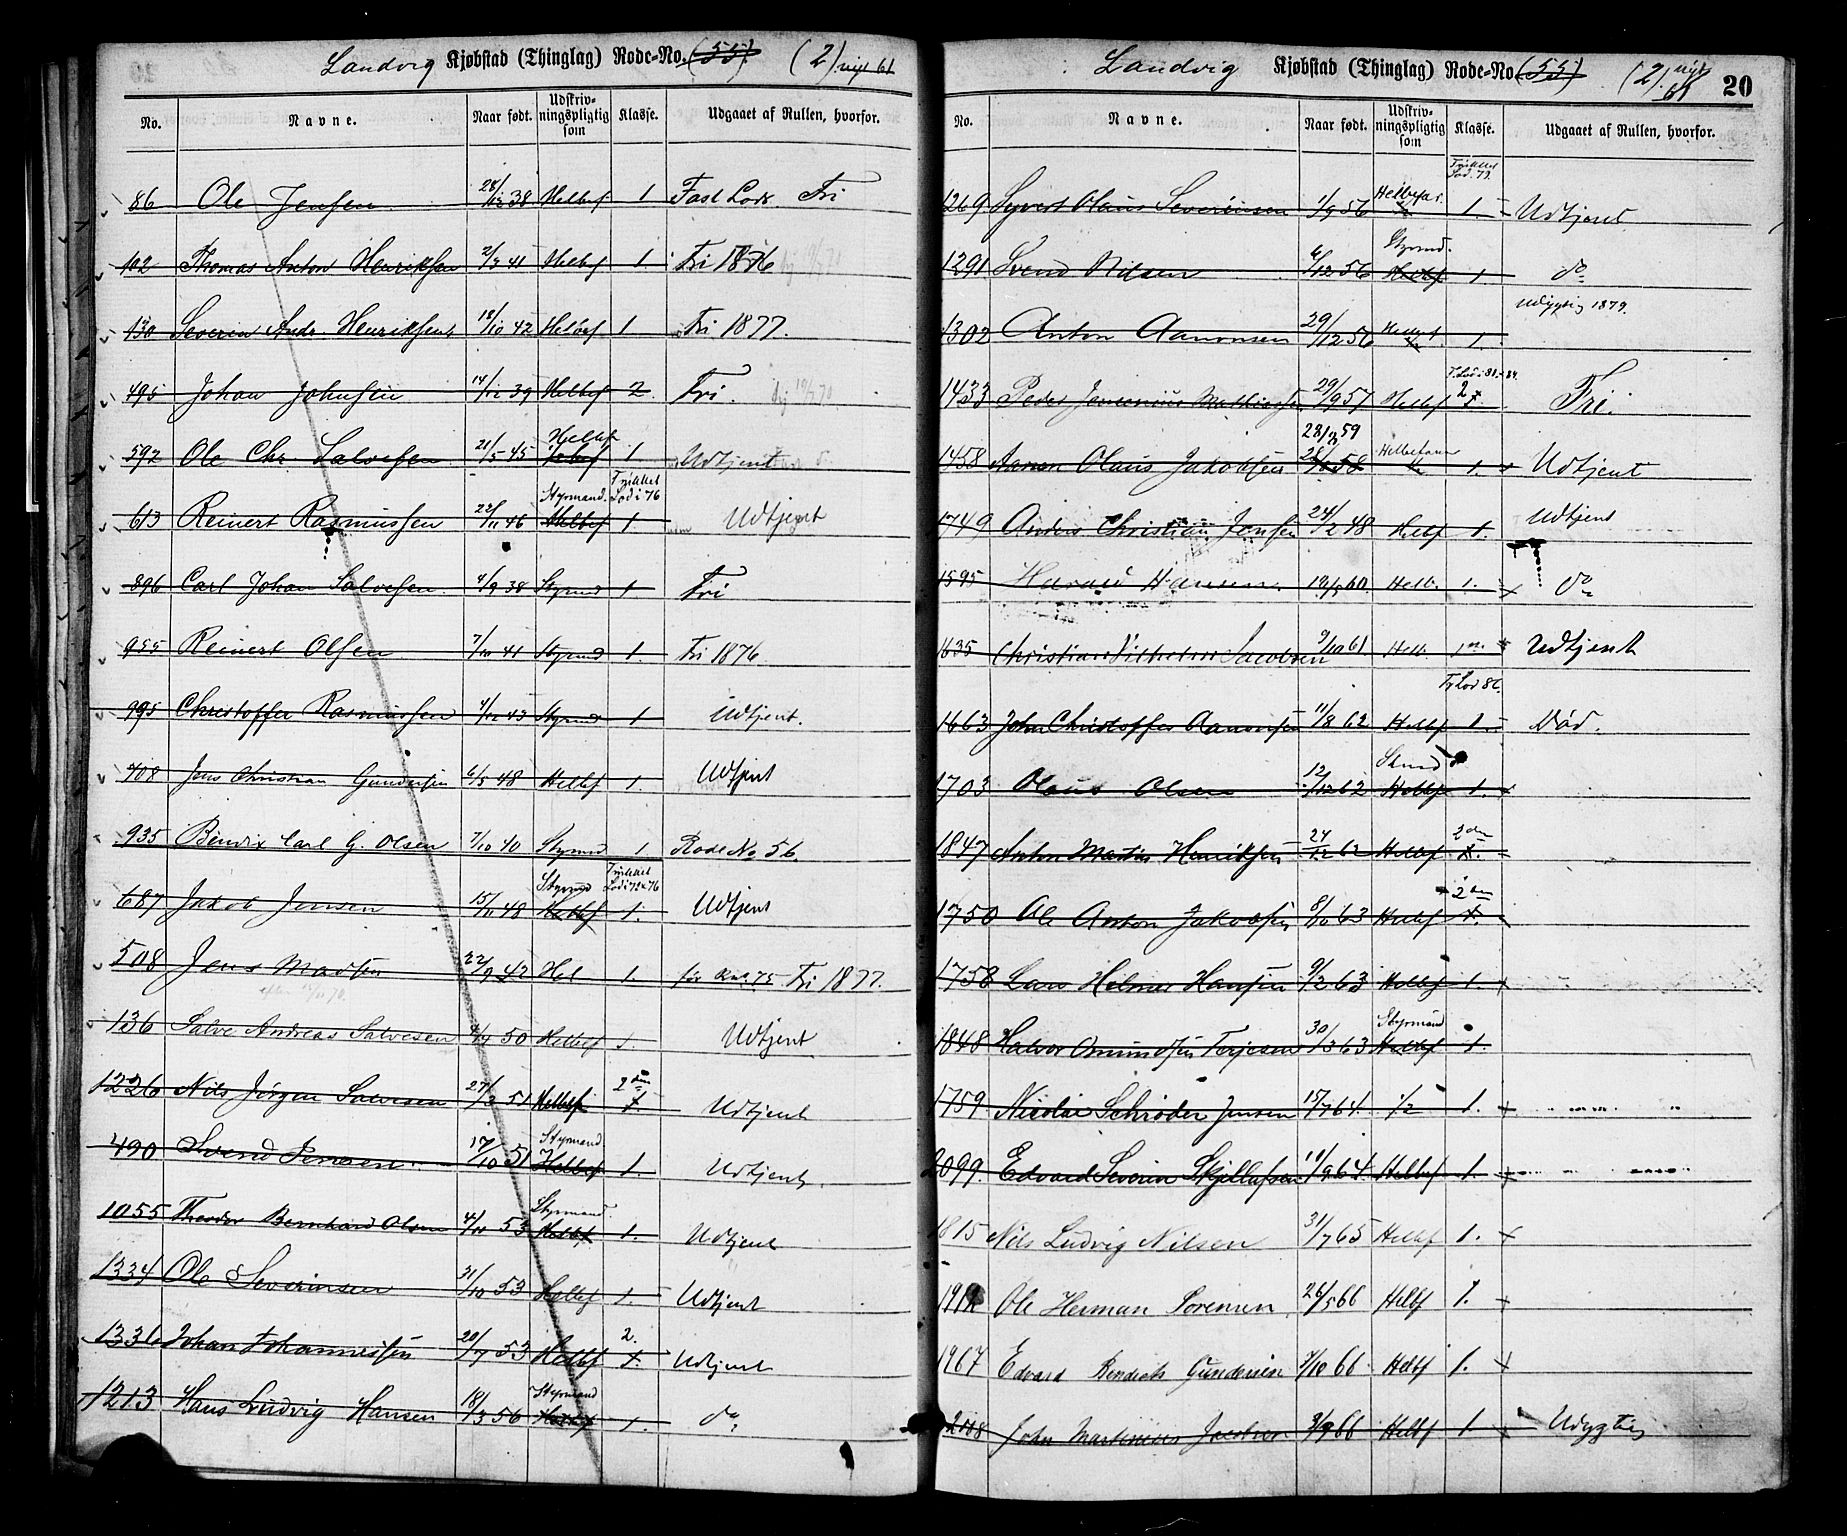 Landvig Kjøbstad (Thinglag) Rode-No. (55) (2) nyt 61
No. Navne. Naar født. Udskriv-ningspligtig som Klasse. Udgaaet af Rullen, hvorfor.
86 Ole Jensen 28/12 38 Helbef 1 Fast Lods Fri
102 Thomas Anton Henriksen 2/3 41 Helbef 1 Fri 1876
130 Severin Andr. Henriksen 18/10 42 Helbef 1 Fri 1877.
495 Johan Johnsen 14/12 39 Helbef 2. Fri.
592 Ole Chr. Salvesen 21/5 45 Helbef 1 Udtjent
Frikkel Lod i 76
613 Reinert Rasmussen 22/11 46 Styrmand. Helbef 1. Udtjent
896 Carl Johan Salvesen 4/9 38 Styrmd 1 Fri
955 Reinert Olsen 7/10 41 Styrmd 1. Fri 1876
995 Christoffer Rasmussen 4/12 43 Styrmd 1 Udtjent.
408 Jens Christian Gundersen 6/5 48 Helbef 1 Udtjent
935 Bendix Carl G. Olsen 7/10 40 Styrmd 1 Rode No 56
687 Jakob Jensen 15/11 48 Styrmd Helbef 1. Udtjent
508 Jens Madsen 22/9 42 Hel 1. før 75 Fri 1877.
136 Salve Andreas Salvesen 4/4 50 Helbef 1. Udtjent
1226 Nils Jörgen Salvesen 27/3 51 Helbef 2den 1 Udtjent
490 Svend Jensen 17/10 51 Styrmand Helbef 1. Udtjent
1055 Theodor Bernhard Olsen 4/11 53 Styrmand. Helbef 1. Udtjent
1334 Ole Severinsen 31/10 53 Helbef 1. Udtjent
1336 Johan Johannessen 20/7 53 Helbef 2. 1 Udtjent
1213 Hans Ludvig Hansen 18/3 56 Styrmand Helbef 1. do
Landvig Kjøbstad (Thinglag) Rode-No. (55) (2) nyt 61 20
No. Navne. Naar født. Udskriv-ningspligtig som Klasse. Udgaaet af Rullen, hvorfor.
1269 Syvert Olaus Severinsen 1/9 56 Helbefar. 1. Udtjent
1291 Svend Nilsen 6/12 56 Styrmd. Helbef 1 do
Udygtig 1879.
1302 Anton Aanonsen 29/12 56 Helbef 1.
1433 Peder Mathiassen 29/9 57 Helbef 2 1 Fri.
28/ 59
1458 Aanon Olaus Jakobsen 58 Helbefaren 1. Udtjent
1749 Anders Christian Jensen 24/2 48 Helbf 1. Udtjent
1595 Harald Hansen 60 Helb. 1. do
1635 Christian Vilhelm Jacobsen 9/10 61 Helb. 1 Udtjent
Fr Lod 86.
1663 John Christoffer Aanonsen 11/8 62 Helbef 1. Död.
1703 Olaus Olsen 12/12 62 Helbef 1.
1847 Anton Martin Henriksen 24/12 62 Helbef 2den 1.
1750 Ole Anton Jakobsen 8/10 63 Helbef 2den 1.
1758 Lars Helmer Hansen 9/2 63 Helbef 1.
1848 Halvor Omundsen Terjesen 30/3 63 Styrmand Helbef 1.
1759 Nicolai Schröder Jensen 15/7 64. 1/2 1. "
2099. Edvard Severin Skjellefsen 11/9 64. Helbef 1. "
1815 Nils Ludvig Nilsen 31/7 65 Helbf 1.
Ole Herman Sorensen 26/5 66 Helbf 1.
1967 Edvard Bendiks Gundersen 7/10 66 Helbf 1.
John Martinius Jacobsen 3/9 66 Helbf 1. Udygtig